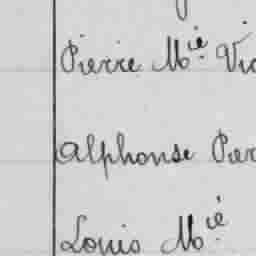 Pierre Mie Vic
Alphonse Pier
Louis Mié